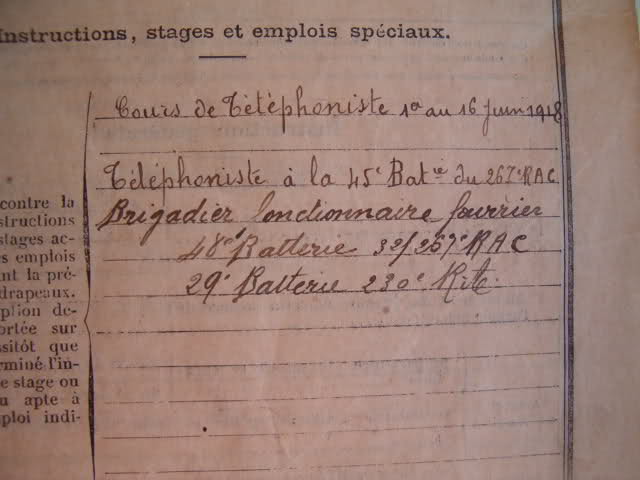 Instructions, stages et emplois spéciaux.
Cours de Téléphoniste 1er au 16 Juin 1918
Téléphoniste à la 45e Batie du 267e RAC
Brigadier fonctionnaire fourrier
48e Batterie 32/267e RAC
29e Batterie 230e
contre la
structions
stages ac-
s emplois
nt la pré-
drapeaux.
ption de-
ortée sur
ssitôt que
rminé l'in-
e stage ou
u apte à
ploi indi-